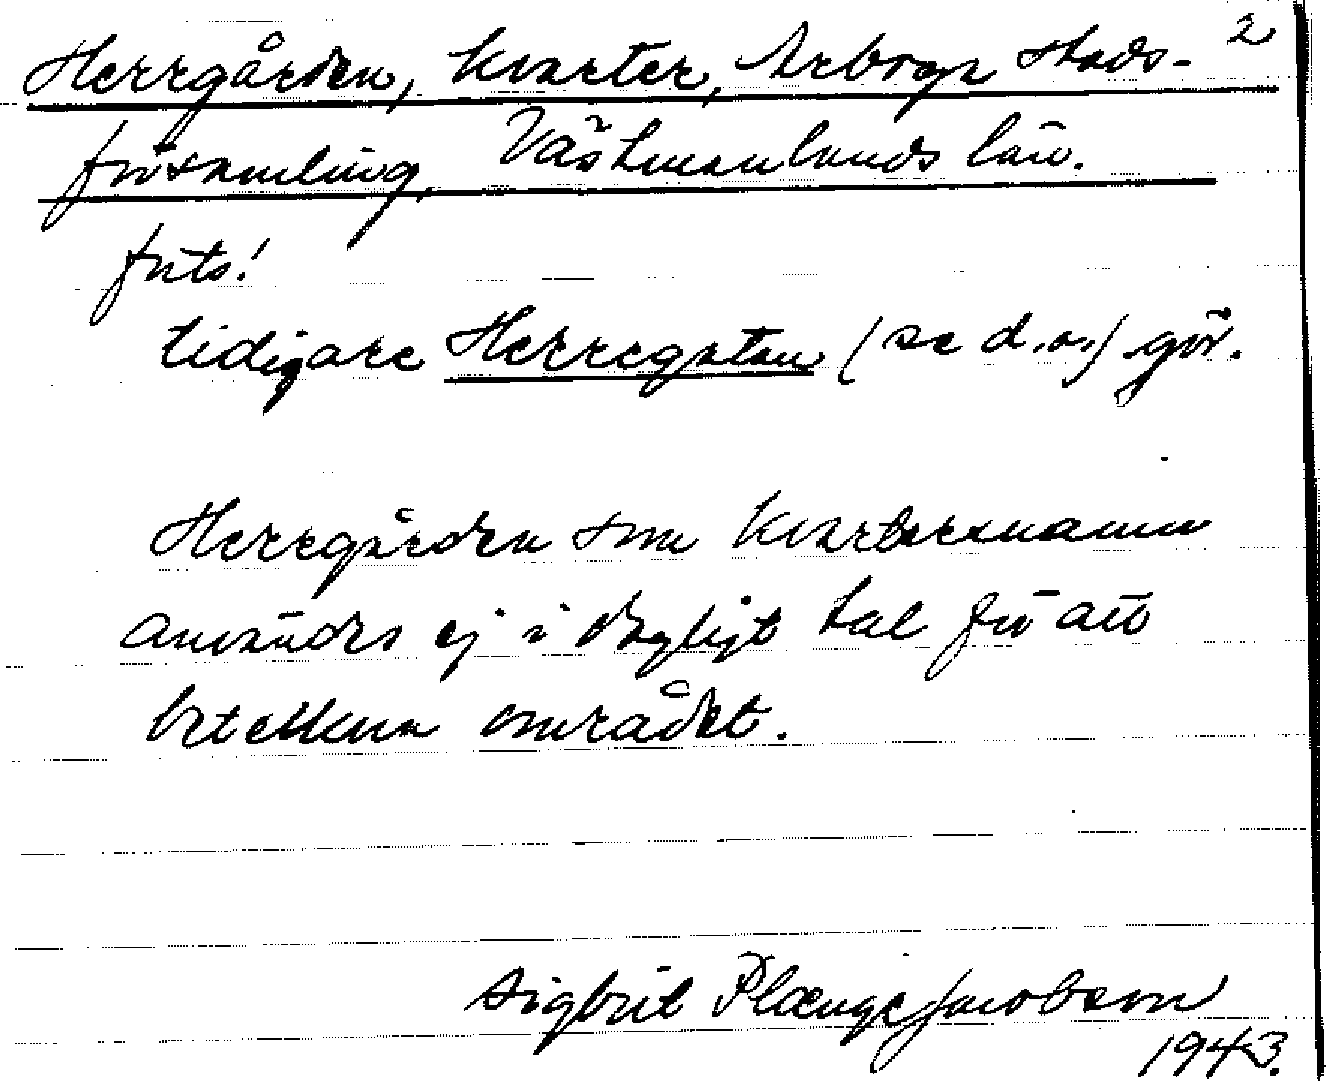 2
Herrgården, kvarter, Arboga stads-
församling, Västmanlands län.
forts!
tidigare Herregatan (se d.o.) gör.
Herrgården som kvartersnamn
användes ej i dagligt tal för att
beteckna området.
Sigbrit Plænge Jacobson
1943.